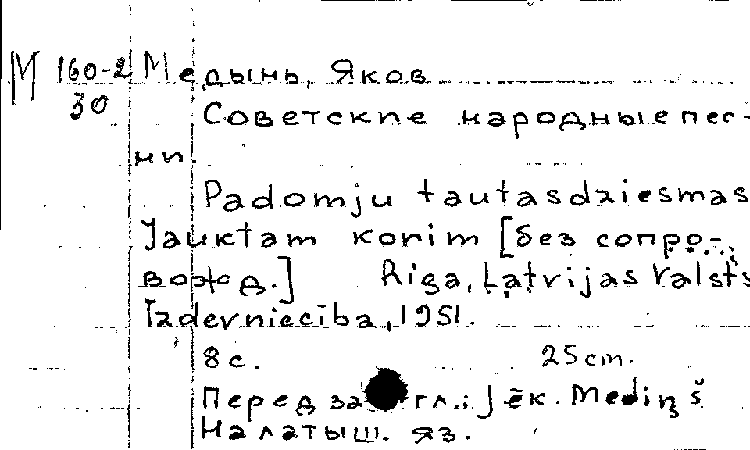 М 160-2 Медынь, Яков
30
Советские народные пес-
ни.
Padomju tautasdziesmas
Jauktam korim [без сопро-
вожд.] Riga, Latvijas Valsts
Izdevniecība, 1951.
8 с. 25 cm.
Перед загл.: Jēk. Mediņš
На латыш. яз.